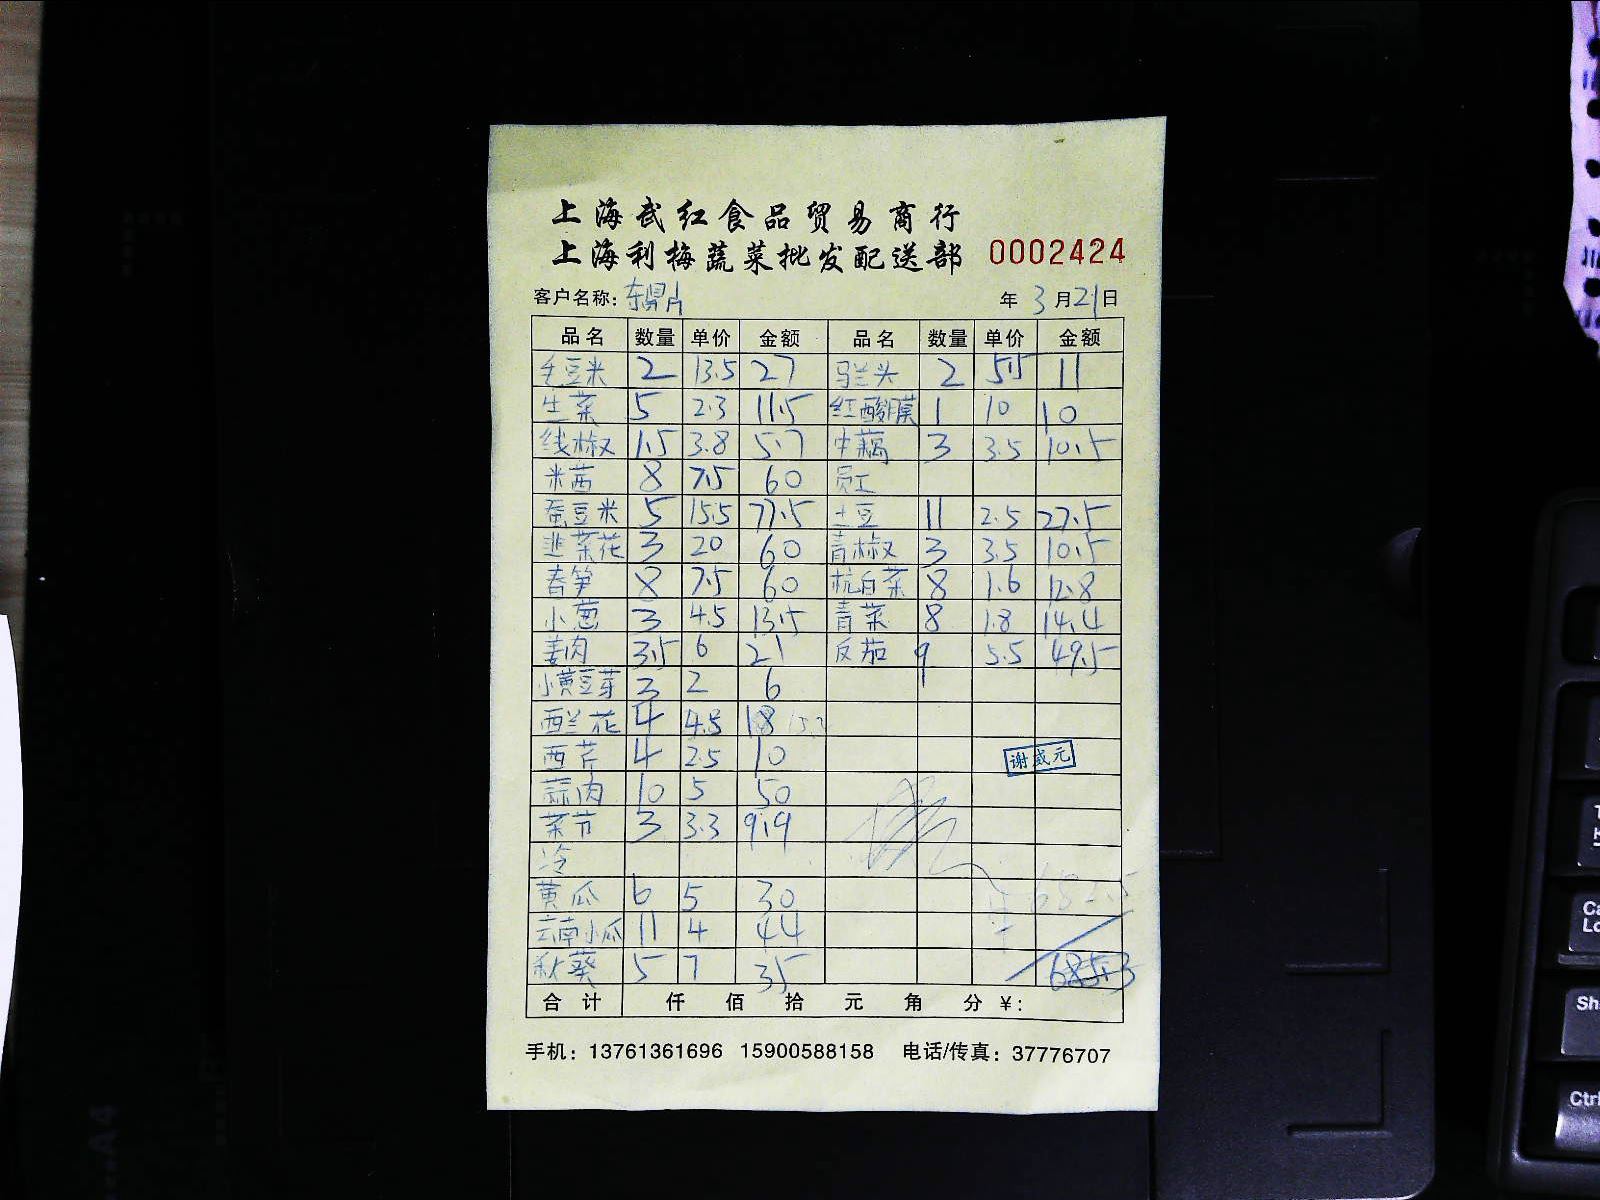 上海武红食品贸易商行
上海利梅蔬菜批发配送部 0002424
客户名称: 东鼎 年 3 月 21 日
品名 数量 单价 金额 品名 数量 单价 金额
毛豆米 2 13.5 27 马兰头 2 5.5 11
生菜 5 2.3 11.5 红酸膜 1 10 10
线椒 1.5 3.8 5.7 中藕 3 3.5 10.5
米茜 8 7.5 60 员工
蚕豆米 5 15.5 77.5 土豆 11 2.5 27.5
韭菜花 3 20 60 青椒 3 3.5 10.5
春笋 8 7.5 60 杭白菜 8 1.6 12.8
小葱 3 4.5 13.5 青菜 8 1.8 14.4
姜肉 3.5 6 21 反茄 9 5.5 49.5
小黄豆芽 3 2 6
西兰花 4 4.5 18
西芹 4 2.5 10
谢威元
蒜肉 10 5 50
菜节 3 3.3 9.9
冷
黄瓜 6 5 30
云南小瓜 11 4 44
秋葵 5 7 35 685.3
合计 仟 佰 拾 元 角 分 ¥:
手机: 13761361696 15900588158 电话/传真: 37776707
A4
Ctrl